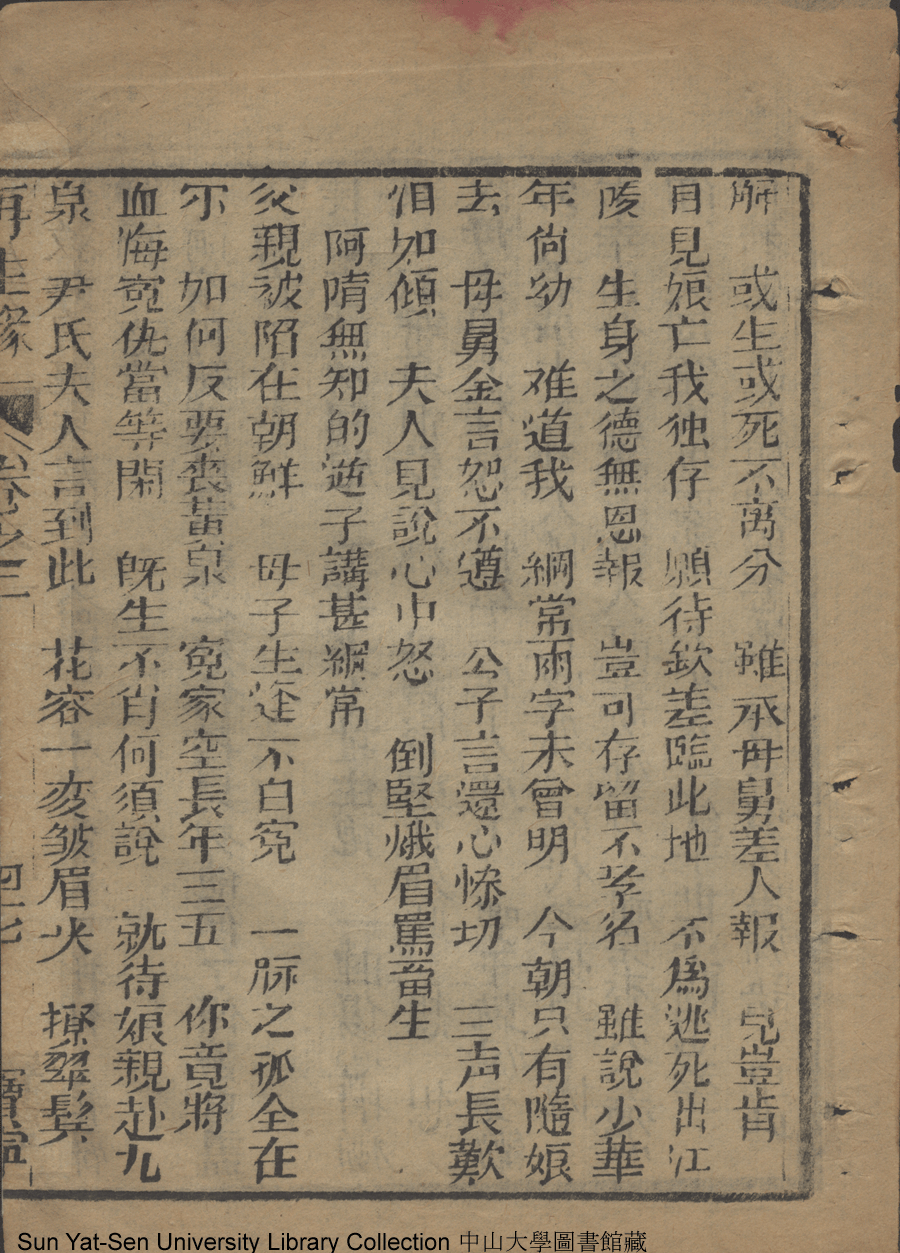 解　或生或死不离分　雖承母舅差人報　兒豈肯
目見娘亡我独存　願待欽差臨此地　不為逃死出江
陵　生身之德無恩報　豈可存留不孝名　雖說少華
年尚幼　难道我　綱常兩字未曾明　今朝只有隨娘
去　母舅金言恕不遵　公子言還心慘切　三声長歎
泪如傾　夫人見說心中怒　倒堅蛾眉罵畜生
阿隋無知的逆子講甚綱常
父親被陷在朝鮮　母子生逢不白寃　一脉之孤全在
尔　如何反要喪黃泉　寃家空長年三五　你竟將
血海寃仇當等閑　既生不肖何須說　就待娘親赴九
泉　尹氏夫人言到此　花容一变皱眉尖　撩翠鬓
再生緣　卷之三　四七　寶寧
Sun Yat-Sen University Library Collection 中山大學圖書館藏